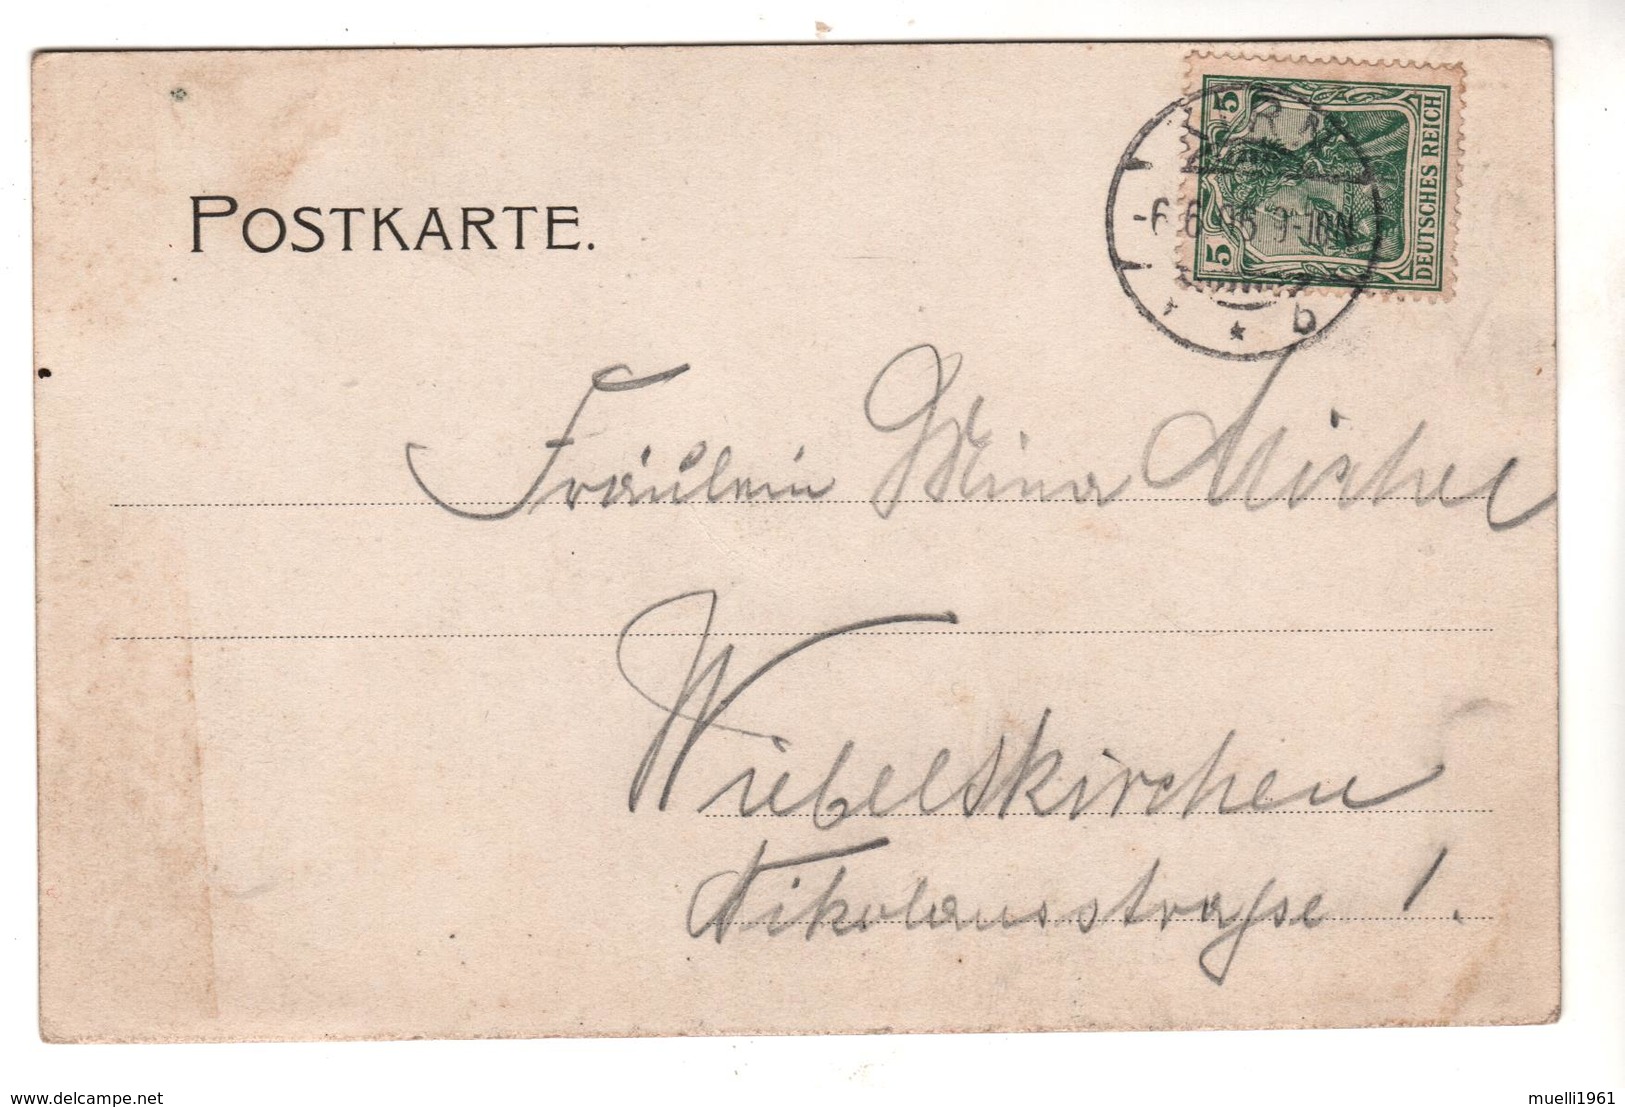 POSTKARTE.
5 DEUTSCHES REICH 5
-6.6.05 9-10N
b
Fräulein Mina Michel
Wiebelskirchen
Nikolausstraße 1.
www.delcampe.net
muelli1961